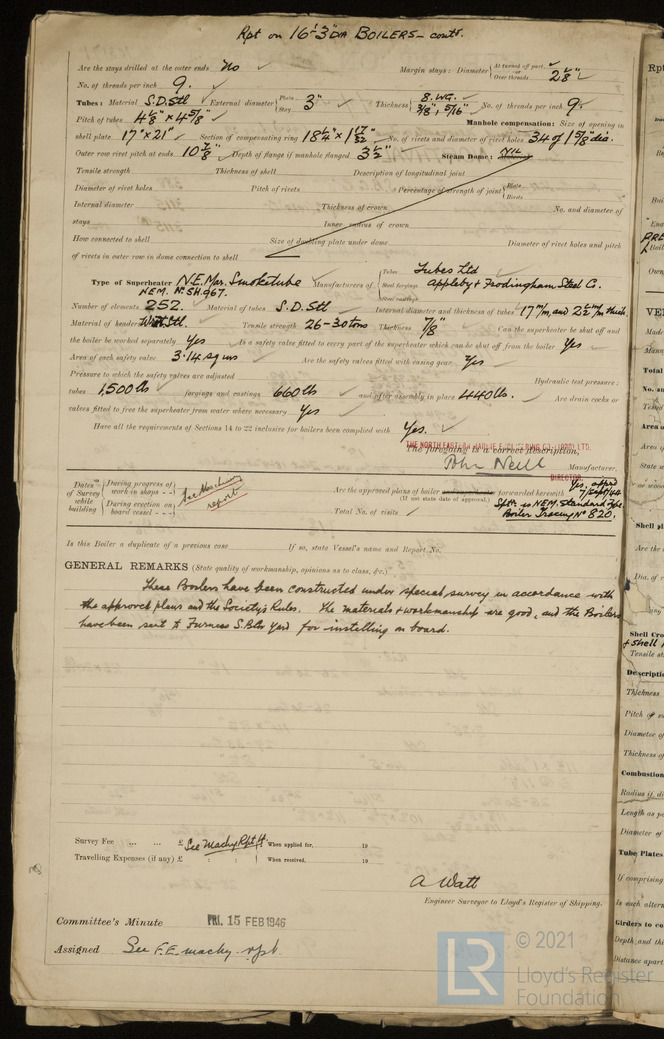 Rpt on 16'-3" DIA BOILERS - contd.
Are the stays drilled at the outer ends No Margin stays: Diameter { At turned off part, or Over threads 2 1/8"
No. of threads per inch 9.
Tubes: Material S.D. Stl External diameter { Plain Stay 3" Thickness { 8. WG. 3/8", 5/16" No. of threads per inch 9
Pitch of tubes 4 1/8" x 4 5/8" Manhole compensation: Size of opening in
shell plate 17" x 21" Section of compensating ring 18 1/4" x 1 17/32" No. of rivets and diameter of rivet holes 34 of 1 5/8" dia.
Outer row rivet pitch at ends 10 7/8" Depth of flange if manhole flanged 3 1/2" Steam Dome: NIL
Tensile strength Thickness of shell Description of longitudinal joint
Diameter of rivet holes Pitch of rivets Percentage of strength of joint { Plate Rivets
Internal diameter Thickness of crown No. and diameter of
stays Inner radius of crown
How connected to shell Size of doubling plate under dome Diameter of rivet holes and pitch
of rivets in outer row in dome connection to shell
Type of Superheater N.E. Mar. Smoketube Manufacturers of { Tubes Tubes Ltd
NEM. No. SH.967. Steel forgings Appleby & Frodingham Steel C.
Steel castings
Number of elements 252. Material of tubes S.D. Stl Internal diameter and thickness of tubes 17 m/m and 2 1/2 m/m thick.
Material of headers Stl. Tensile strength 26-30 tons Thickness 7/8" Can the superheater be shut off and
the boiler be worked separately Yes Is a safety valve fitted to every part of the superheater which can be shut off from the boiler Yes
Area of each safety valve 3.14 sq ins Are the safety valves fitted with easing gear Yes
Pressure to which the safety valves are adjusted Hydraulic test pressure:
tubes 1,500 lbs forgings and castings 660 lbs and after assembly in place 440 lbs. Are drain cocks or
valves fitted to free the superheater from water where necessary Yes
Have all the requirements of Sections 14 to 22 inclusive for boilers been complied with Yes.
THE NORTH EASTERN MARINE ENGINEERING CO. (1938) LTD.
The foregoing is a correct description,
John Neill Manufacturer.
DIRECTOR.
Dates of Survey while building { During progress of work in shops - - During erection on board vessel - - - } See Machinery report
Are the approved plans of boiler forwarded herewith Yes. appd 7/Sept/44
(If not state date of approval.) Sptr. is NEM. Standard Type.
Total No. of visits Boiler Tracing No 820.
Is this Boiler a duplicate of a previous case If so, state Vessel's name and Report No.
GENERAL REMARKS (State quality of workmanship, opinions as to class, &c.)
These Boilers have been constructed under special survey in accordance with
the approved plans and the Society's Rules. The materials & workmanship are good, and the Boilers
have been sent to Furness S.B.Co Yard for installing on board.
Survey Fee ... ... £ See Machy Rpt H When applied for, 19
Travelling Expenses (if any) £ : : When received, 19
A Watt
Engineer Surveyor to Lloyd's Register of Shipping.
Committee's Minute FRI. 15 FEB 1946
Assigned See F.E. machy. rpt.
LR © 2021
Lloyd's Register
Foundation
Rpt
Boil
Own
VE
Made
Manu
Total
No. an
Tested
Area o
Area o
State w
or wood
Shell pl
Are the
Dia. of
any
Shell Cro
+ shell
Tensile st
Descripti
Thickness
Pitch of s
Diameter o
Thickness of
Combustion
Radius if di
Length as pe
Diameter of
Tube Plates
If comprising
Is each altern
Girders to co
Depth and thi
Distance apart